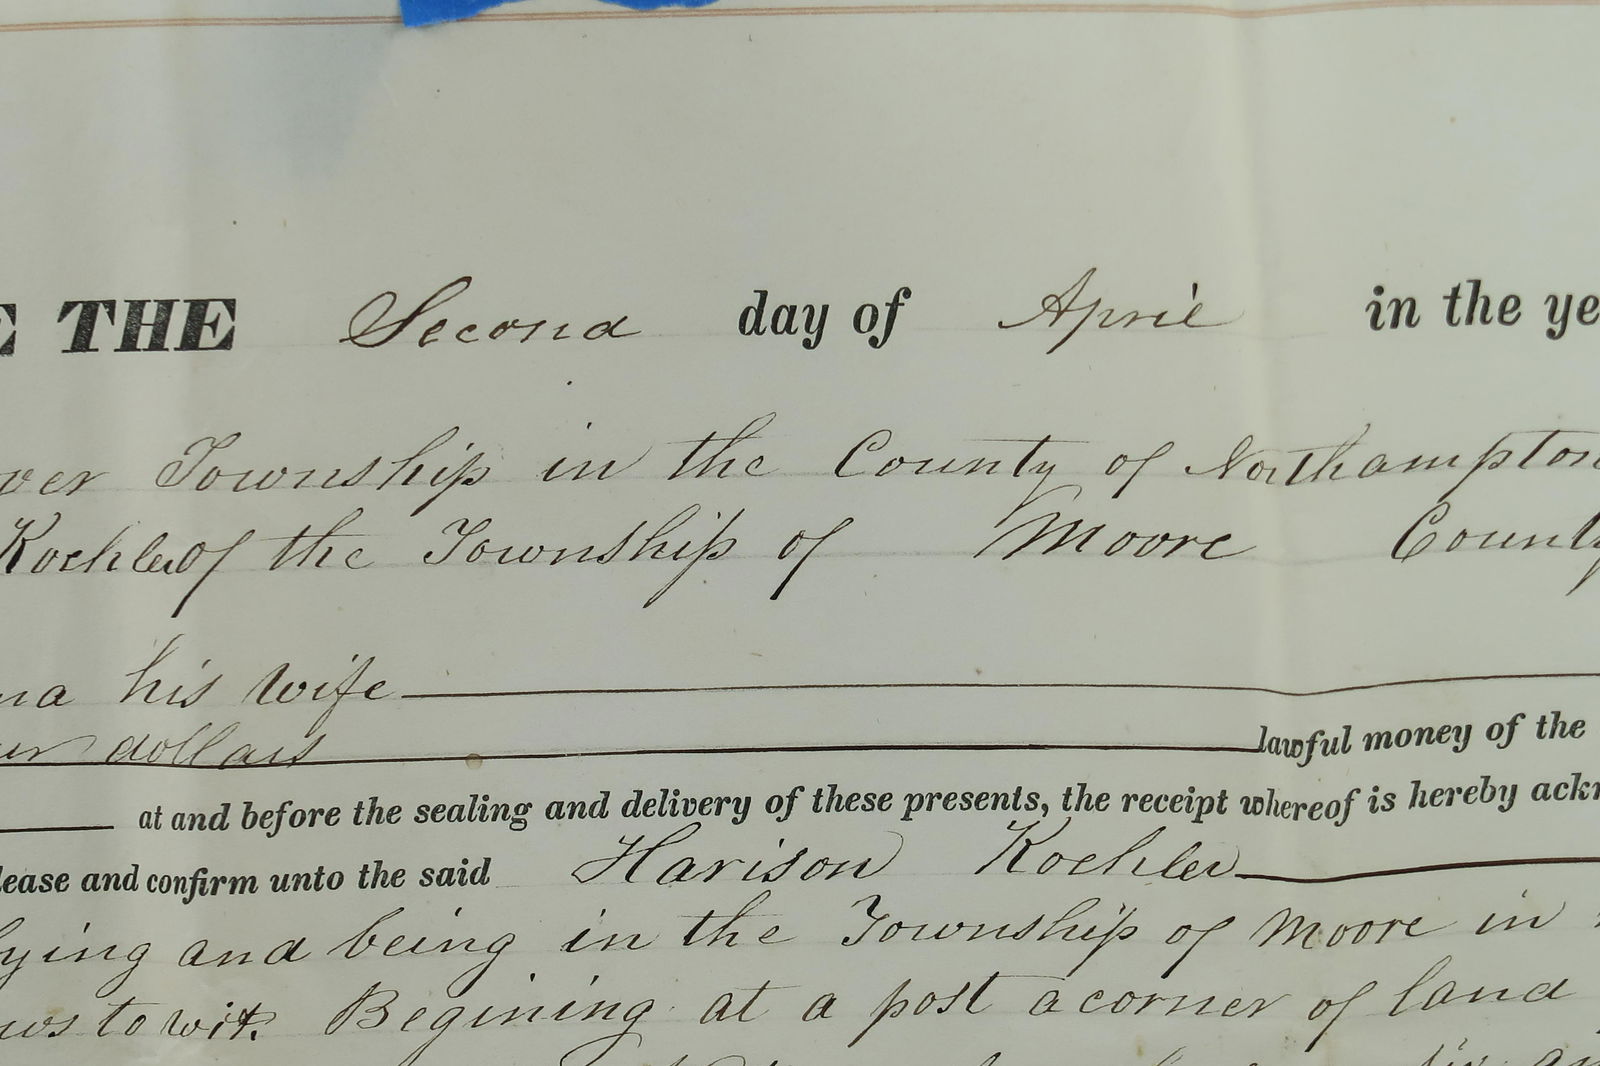 E THE Second day of April in the ye
ver Township in the County of Northampton
Koehler of the Township of Moore County
na his wife
dollars lawful money of the
at and before the sealing and delivery of these presents, the receipt whereof is hereby ackn
lease and confirm unto the said Harison Koehler
lying and being in the Township of Moore in
ws to wit. Begining at a post a corner of land